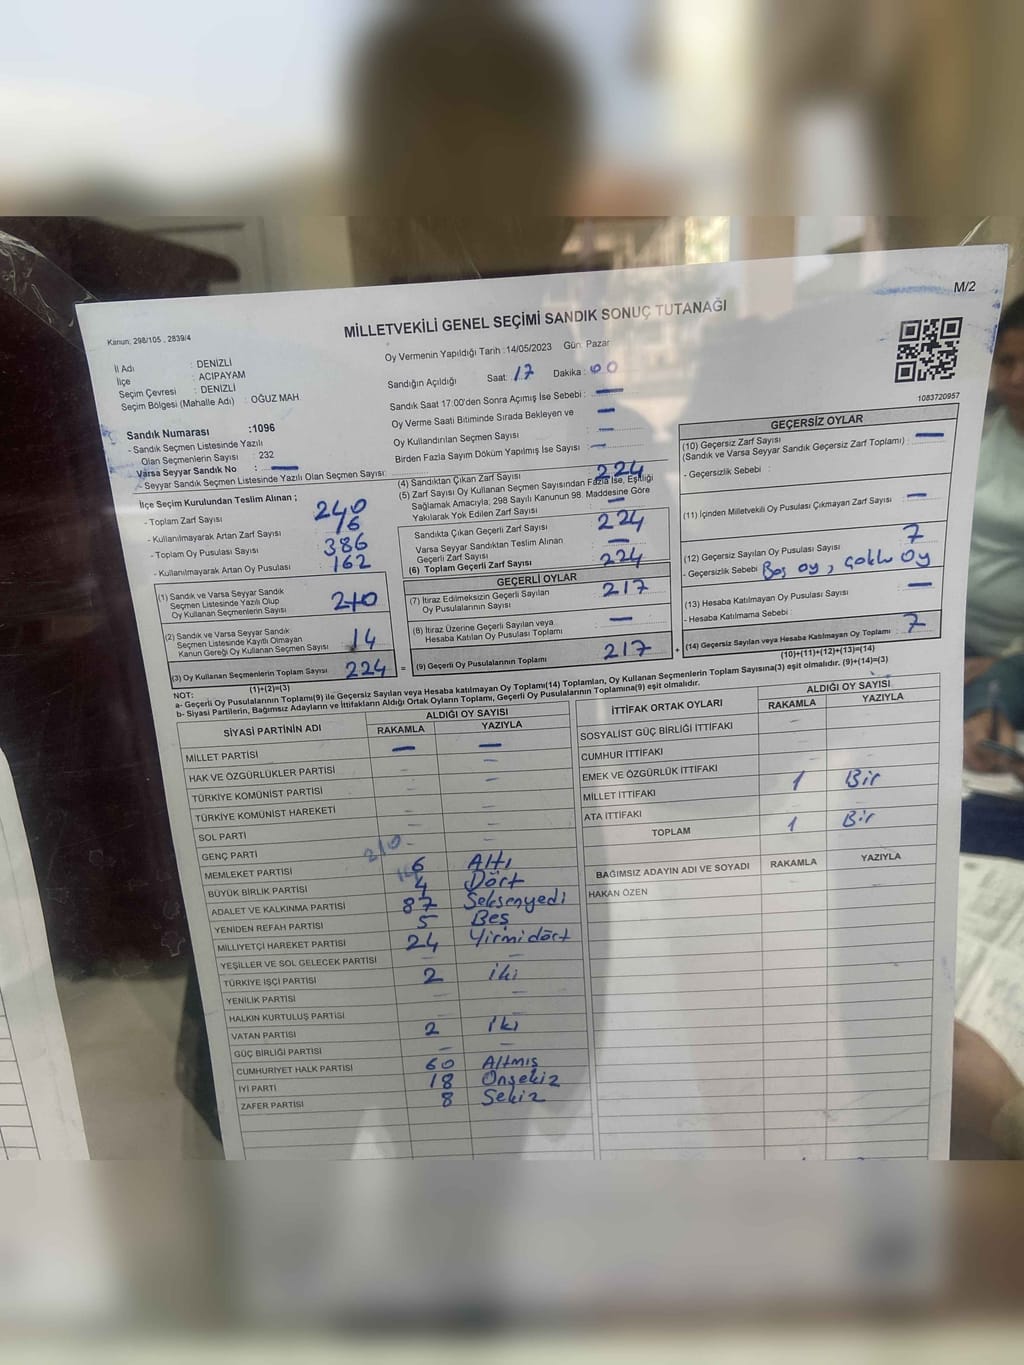 M/2
MİLLETVEKİLİ GENEL SEÇİMİ SANDIK SONUÇ TUTANAĞI
Kanun: 298/105 , 2839/4
İl Adı : DENİZLİ
İlçe : ACIPAYAM
Seçim Çevresi : DENİZLİ
Seçim Bölgesi (Mahalle Adı) : OĞUZ MAH.
Sandık Numarası :1096
- Sandık Seçmen Listesinde Yazılı
Olan Seçmenlerin Sayısı : 232
Varsa Seyyar Sandık No : —
- Seyyar Sandık Seçmen Listesinde Yazılı Olan Seçmen Sayısı:
Oy Vermenin Yapıldığı Tarih :14/05/2023 Gün: Pazar
Sandığın Açıldığı Saat: 17 Dakika : 00
Sandık Saat 17.00'den Sonra Açımış İse Sebebi : —
Oy Verme Saati Bitiminde Sırada Bekleyen ve —
Oy Kullandırılan Seçmen Sayısı —
Birden Fazla Sayım Döküm Yapılmış İse Sayısı —
1083720957
İlçe Seçim Kurulundan Teslim Alınan ;
- Toplam Zarf Sayısı 240
- Kullanılmayarak Artan Zarf Sayısı 16
- Toplam Oy Pusulası Sayısı 386
- Kullanılmayarak Artan Oy Pusulası 162
(1) Sandık ve Varsa Seyyar Sandık
Seçmen Listesinde Yazılı Olup
Oy Kullanan Seçmenlerin Sayısı 210
(2) Sandık ve Varsa Seyyar Sandık
Seçmen Listesinde Kayıtlı Olmayan
Kanun Gereği Oy Kullanan Seçmen Sayısı 14
(3) Oy Kullanan Seçmenlerin Toplam Sayısı 224 =
(1)+(2)=(3)
(4) Sandıktan Çıkan Zarf Sayısı 224
(5) Zarf Sayısı Oy Kullanan Seçmen Sayısından Fazla İse, Eşitliği
Sağlamak Amacıyla; 298 Sayılı Kanunun 98. Maddesine Göre
Yakılarak Yok Edilen Zarf Sayısı —
Sandıkta Çıkan Geçerli Zarf Sayısı 224
Varsa Seyyar Sandıktan Teslim Alınan
Geçerli Zarf Sayısı —
(6) Toplam Geçerli Zarf Sayısı 224
GEÇERLİ OYLAR
(7) İtiraz Edilmeksizin Geçerli Sayılan
Oy Pusulalarının Sayısı 217
(8) İtiraz Üzerine Geçerli Sayılan veya
Hesaba Katılan Oy Pusulası Toplamı —
(9) Geçerli Oy Pusulalarının Toplamı 217 +
GEÇERSİZ OYLAR
(10) Geçersiz Zarf Sayısı
(Sandık ve Varsa Seyyar Sandık Geçersiz Zarf Toplamı) : —
- Geçersizlik Sebebi :
(11) İçinden Milletvekili Oy Pusulası Çıkmayan Zarf Sayısı —
(12) Geçersiz Sayılan Oy Pusulası Sayısı 7
- Geçersizlik Sebebi Boş oy, çoklu oy
(13) Hesaba Katılmayan Oy Pusulası Sayısı —
- Hesaba Katılmama Sebebi :
(14) Geçersiz Sayılan veya Hesaba Katılmayan Oy Toplamı 7
(10)+(11)+(12)+(13)=(14)
NOT:
a- Geçerli Oy Pusulalarının Toplamı(9) ile Geçersiz Sayılan veya Hesaba katılmayan Oy Toplamı(14) Toplamları, Oy Kullanan Seçmenlerin Toplam Sayısına(3) eşit olmalıdır. (9)+(14)=(3)
b- Siyasi Partilerin, Bağımsız Adayların ve İttifakların Aldığı Ortak Oyların Toplamı, Geçerli Oy Pusulalarının Toplamına(9) eşit olmalıdır.
SİYASİ PARTİNİN ADI ALDIĞI OY SAYISI
RAKAMLA YAZIYLA
MİLLET PARTİSİ — —
HAK VE ÖZGÜRLÜKLER PARTİSİ — —
TÜRKİYE KOMÜNİST PARTİSİ — —
TÜRKİYE KOMÜNİST HAREKETİ — —
SOL PARTİ — —
GENÇ PARTİ — —
MEMLEKET PARTİSİ 6 Altı
BÜYÜK BİRLİK PARTİSİ 4 Dört
ADALET VE KALKINMA PARTİSİ 87 Seksenyedi
YENİDEN REFAH PARTİSİ 5 Beş
MİLLİYETÇİ HAREKET PARTİSİ 24 Yirmidört
YEŞİLLER VE SOL GELECEK PARTİSİ — —
TÜRKİYE İŞÇİ PARTİSİ 2 iki
YENİLİK PARTİSİ — —
HALKIN KURTULUŞ PARTİSİ — —
VATAN PARTİSİ 2 İki
GÜÇ BİRLİĞİ PARTİSİ — —
CUMHURİYET HALK PARTİSİ 60 Altmış
İYİ PARTİ 18 Onsekiz
ZAFER PARTİSİ 8 Sekiz
İTTİFAK ORTAK OYLARI ALDIĞI OY SAYISI
RAKAMLA YAZIYLA
SOSYALİST GÜÇ BİRLİĞİ İTTİFAKI —
CUMHUR İTTİFAKI
EMEK VE ÖZGÜRLÜK İTTİFAKI —
MİLLET İTTİFAKI 1 Bir
ATA İTTİFAKI —
TOPLAM 1 Bir
BAĞIMSIZ ADAYIN ADI VE SOYADI RAKAMLA YAZIYLA
HAKAN ÖZEN —